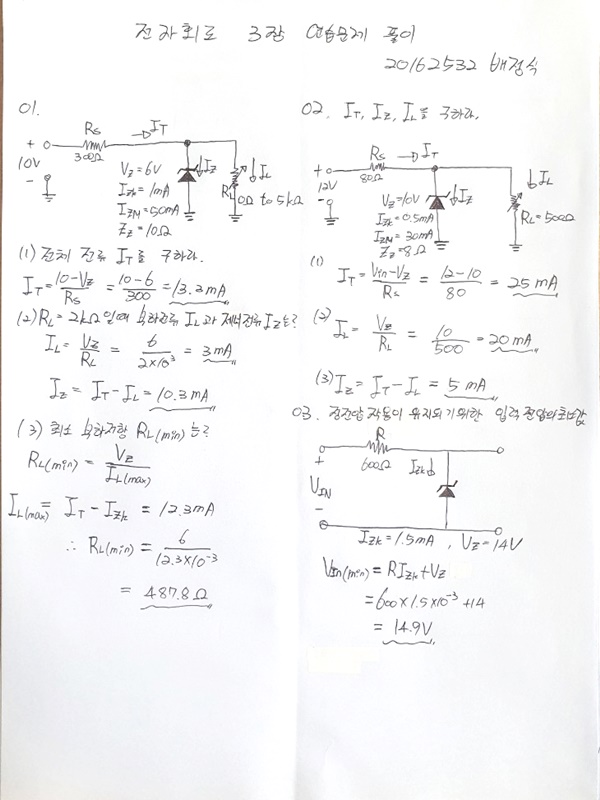 전자회로 3장 연습문제 풀이
20162532 배정식
01.
Rs → IT
300Ω
+
10V
-
↓IZ
↓IL
RL
0Ω to 5kΩ
VZ = 6V
IZk = 1mA
IZM = 50mA
ZZ = 10Ω
(1) 전체 전류 IT를 구하라.
IT = 10-VZ / RS = 10-6 / 300 = 13.3mA
(2) RL = 2kΩ일때 부하전류 IL과 제너전류 IZ는?
IL = VZ / RL = 6 / 2×10³ = 3mA
IZ = IT - IL = 10.3mA
(3) 최소 부하저항 RL(min)는?
RL(min) = VZ / IL(max)
IL(max) = IT - IZk = 12.3mA
∴ RL(min) = 6 / 12.3×10⁻³
= 487.8Ω
02. IT, IZ, IL를 구하라.
Rs → IT
80Ω
+
12V
-
↓IZ
↓IL
RL=500Ω
VZ=10V
IZk=0.5mA
IZM=30mA
ZZ=8Ω
(1)
IT = Vin-VZ / RS = 12-10 / 80 = 25mA
(2)
IL = VZ / RL = 10 / 500 = 20mA
(3) IZ = IT - IL = 5mA
03. 정전압 작동이 유지되기위한 입력 전압의최소값
R
600Ω
IZk↓
+
VIN
-
IZk=1.5mA, VZ=14V
VIn(min) = RIZk+VZ
=600×1.5×10⁻³+14
= 14.9V